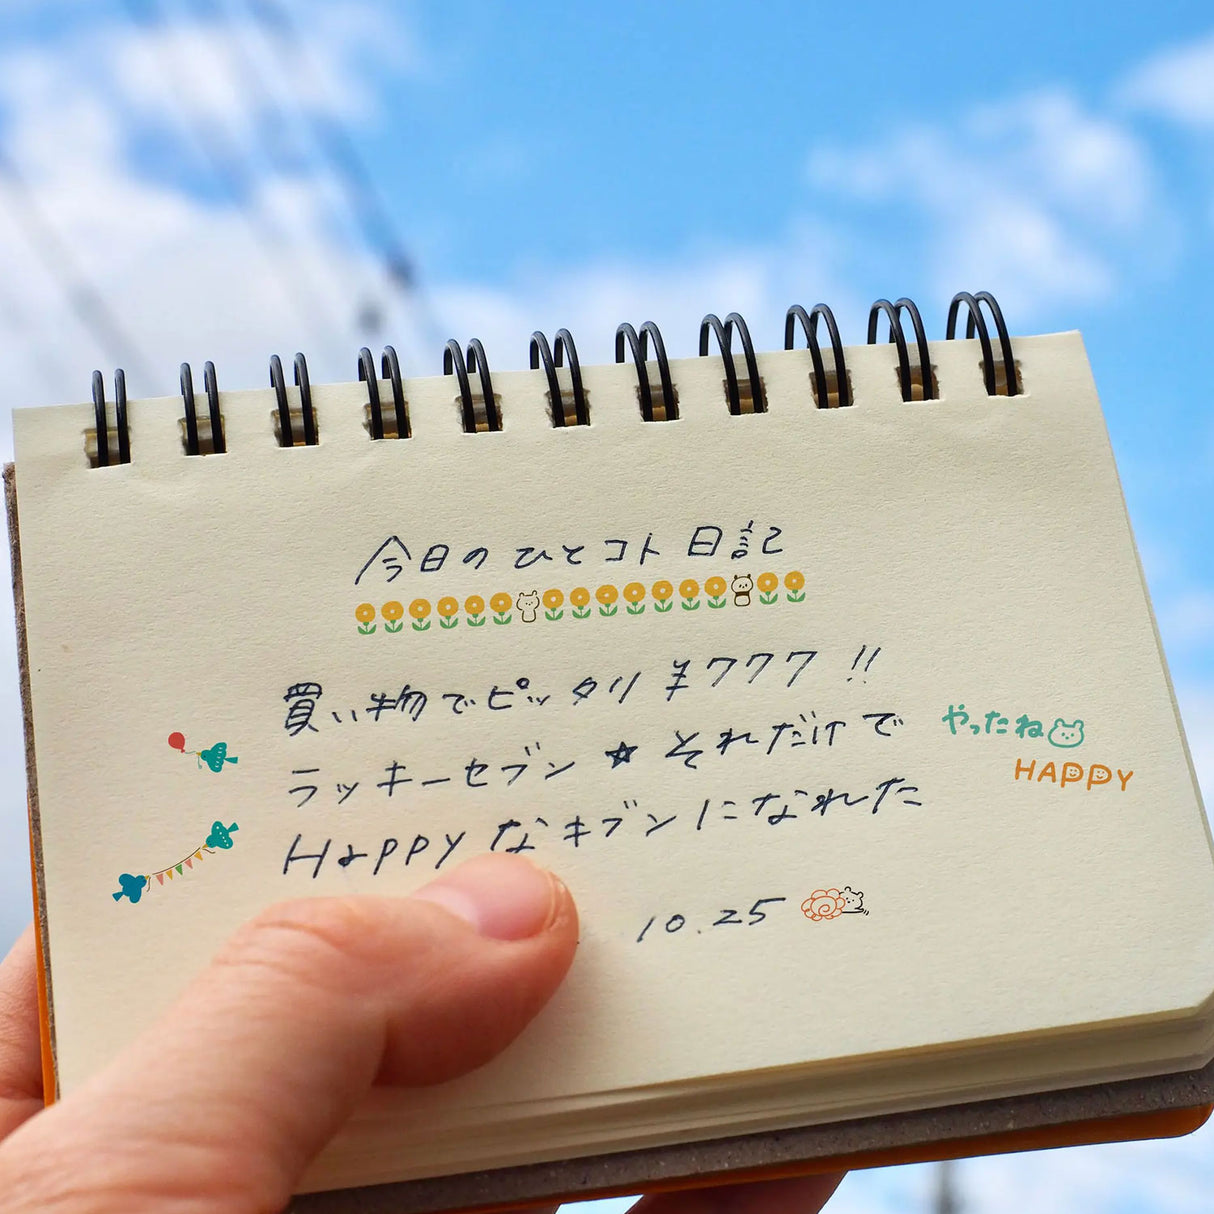 今日のひとコト日記
買い物でピッタリ¥777!!
ラッキーセブン★それだけで
Happyなキブンになれた
やったね
HAPPY
10.25